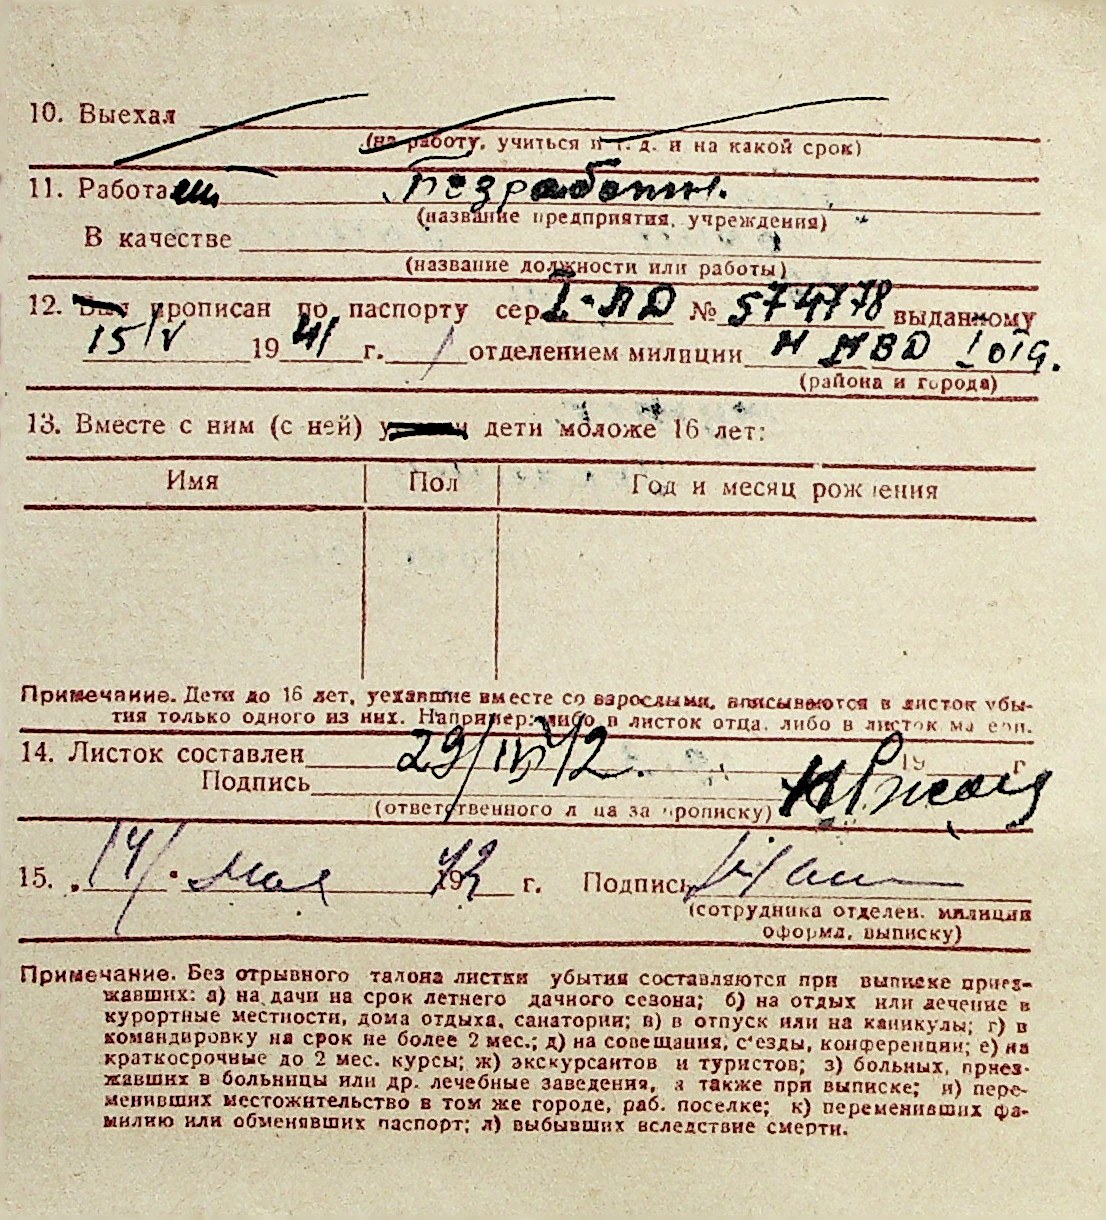 10. Выехал
(на работу, учиться и т. д. и на какой срок)
11. Работа Безработн.
(название предприятия, учреждения)
В качестве
(название должности или работы)
12. Был прописан по паспорту сер. I-ЛД № 574778 выданному
15/V 1941 г. 1 отделением милиции
(района и города)
13. Вместе с ним (с ней) дети моложе 16 лет:
Имя Пол Год и месяц рождения
Примечание. Дети до 16 лет, уехавшие вместе со взрослыми, вписываются в листок убы-
тия только одного из них. Например: либо в листок отца, либо в листок матери.
14. Листок составлен 29/IV 42. 19 г
Подпись
(ответственного лица за прописку)
15. 14/ мая 1942 г. Подпись
(сотрудника отделен. милиции
оформл, выписку)
Примечание. Без отрывного талона листки убытия составляются при выписке приез-
жавших: а) на дачи на срок летнего дачного сезона; б) на отдых или лечение в
курортные местности, дома отдыха, санатории; в) в отпуск или на каникулы; г) в
командировку на срок не более 2 мес.; д) на совещания, с'езды, конференции; е) на
краткосрочные до 2 мес. курсы; ж) экскурсантов и туристов; з) больных, приез-
жавших в больницы или др. лечебные заведения, а также при выписке; и) пере-
менивших местожительство в том же городе, раб. поселке; к) переменивших фа-
милию или обменявших паспорт; л) выбывших вследствие смерти.